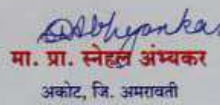 Abhyankar
मा. प्रा. स्नेहल अंभ्यकर
अकोट, जि. अमरावती